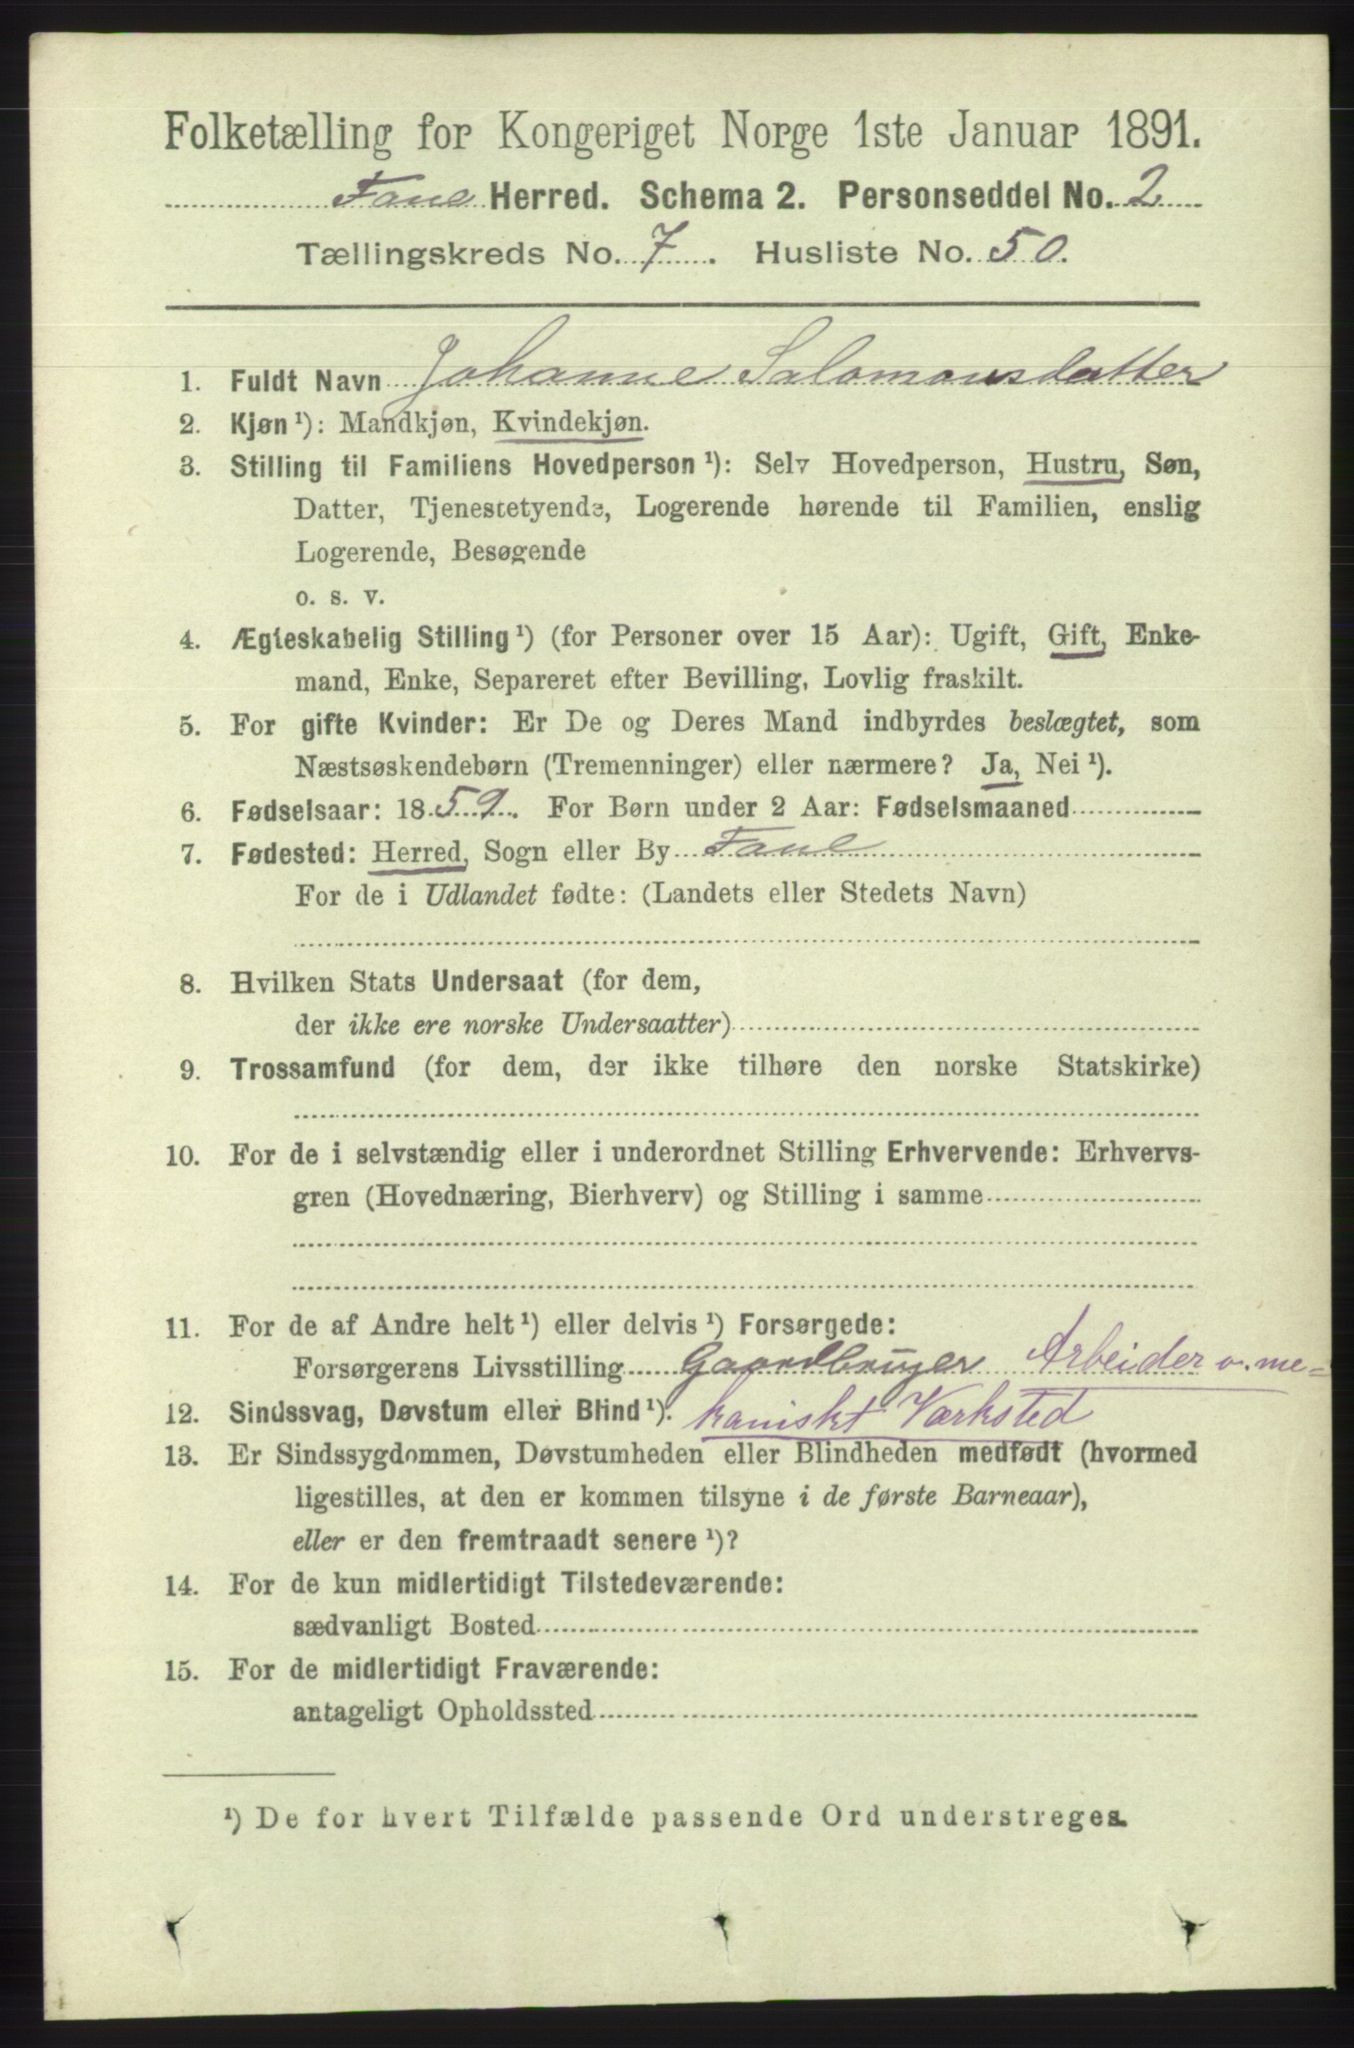 Folketælling for Kongeriget Norge 1ste Januar 1891.
Fane Herred. Schema 2. Personseddel No. 2
Tællingskreds No. 7. Husliste No. 50.
1. Fuldt Navn Johanne Salomonsdatter
2. Kjøn ¹): Mandkjøn, Kvindekjøn.
3. Stilling til Familiens Hovedperson ¹): Selv Hovedperson, Hustru, Søn,
Datter, Tjenestetyende, Logerende hørende til Familien, enslig
Logerende, Besøgende
o. s. v.
4. Ægteskabelig Stilling ¹) (for Personer over 15 Aar): Ugift, Gift, Enke-
mand, Enke, Separeret efter Bevilling, Lovlig fraskilt.
5. For gifte Kvinder: Er De og Deres Mand indbyrdes beslægtet, som
Næstsøskendebørn (Tremenninger) eller nærmere? Ja, Nei ¹).
6. Fødselsaar: 1859. For Børn under 2 Aar: Fødselsmaaned
7. Fødested: Herred, Sogn eller By Fane
For de i Udlandet fødte: (Landets eller Stedets Navn)
8. Hvilken Stats Undersaat (for dem,
der ikke ere norske Undersaatter)
9. Trossamfund (for dem, der ikke tilhøre den norske Statskirke)
10. For de i selvstændig eller i underordnet Stilling Erhvervende: Erhvervs-
gren (Hovednæring, Bierhverv) og Stilling i samme
11. For de af Andre helt ¹) eller delvis ¹) Forsørgede:
Forsørgerens Livsstilling Gaardbruger Arbeider v. me-
12. Sindssvag, Døvstum eller Blind ¹). kaniskt Værksted
13. Er Sindssygdommen, Døvstumheden eller Blindheden medfødt (hvormed
ligestilles, at den er kommen tilsyne i de første Barneaar),
eller er den fremtraadt senere ¹)?
14. For de kun midlertidigt Tilstedeværende:
sædvanligt Bosted
15. For de midlertidigt Fraværende:
antageligt Opholdssted
¹) De for hvert Tilfælde passende Ord understreges.